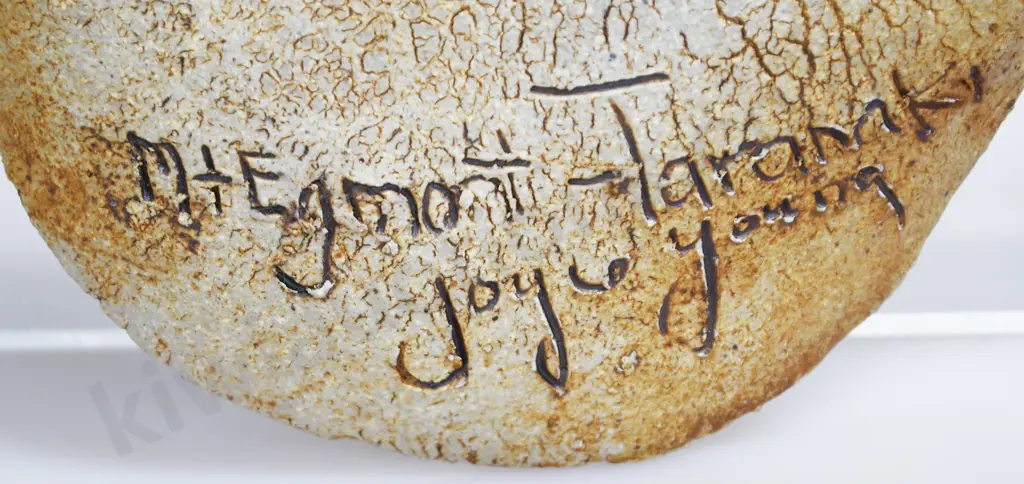 Mt Egmont - Taranaki
Joyce Young